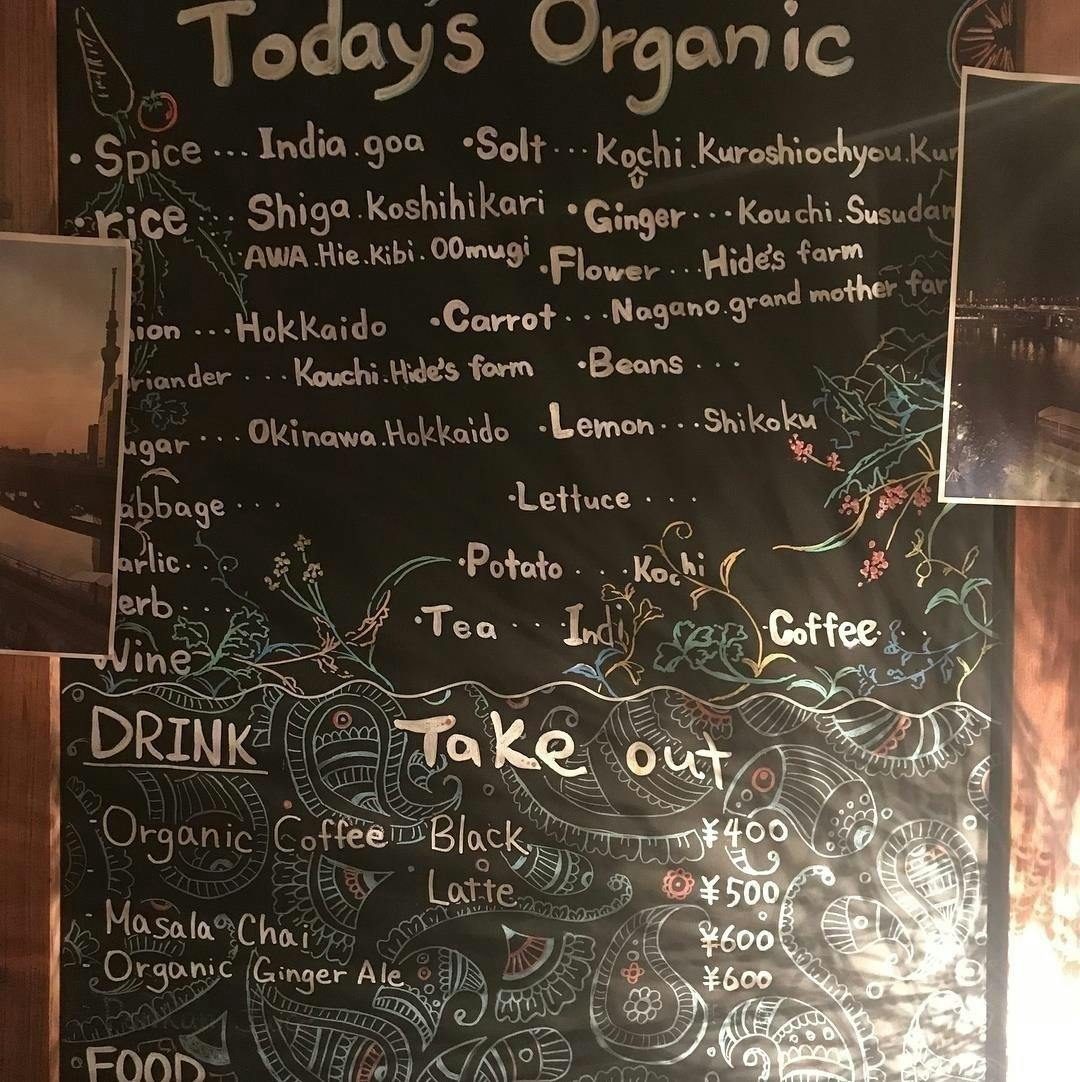 Today's Organic
• Spice ... India.goa
• Solt ... Kochi.Kuroshiochyou.Kur
• rice ... Shiga.Koshihikari
AWA.Hie.Kibi.OOmugi
• Ginger ... Kouchi.Susudan
• Flower ... Hide's farm
nion ... Hokkaido
• Carrot ... Nagano.grand mother far
riander ... Kouchi.Hide's farm
• Beans ...
ugar ... Okinawa.Hokkaido
• Lemon ... Shikoku
abbage ...
• Lettuce ...
arlic ...
• Potato ... Kochi
erb ...
• Tea ... Indi
• Coffee ...
Wine
DRINK Take out
Organic Coffee Black ¥400
Latte ¥500
Masala Chai ¥600
Organic Ginger Ale ¥600
FOOD